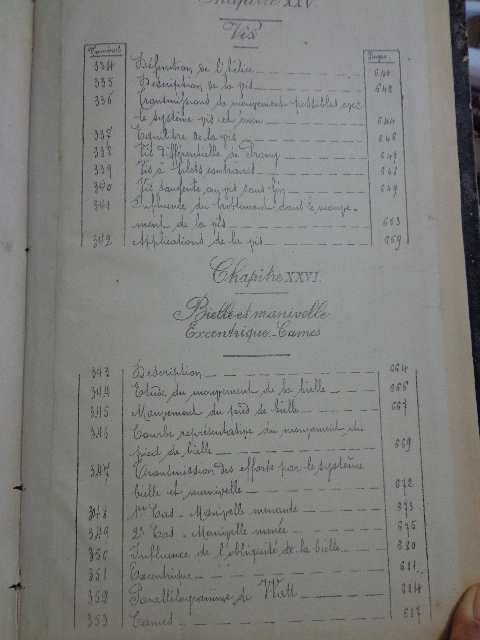 Chapitre XXV.
Vis
Numéros Pages
334 Définition de l'hélice 640
335 Description de la vis 642
336 Transmissions de mouvement possibles avec
le système vis et écrou 644
337 Equilibre de la vis 646
338 Vis différentielle de Prony 647
339 Vis à filets contraires 648
340 Vis tangente ou vis sans fin 649
341 Influence du frottement dans le mouve-
ment de la vis 653
342 Applications de la vis 659
Chapitre XXVI.
Bielle et manivelle
Excentrique - Cames
343 Description 664
344 Etude du mouvement de la bielle 666
345 Mouvement du pied de bielle 667
346 Courbe représentative du mouvement du
pied de bielle 669
347 Transmission des efforts par le système
bielle et manivelle 672
348 1er Cas - Manivelle menante 673
349 2e Cas - Manivelle menée 675
350 Influence de l'obliquité de la bielle 680
351 Excentrique 681
352 Parallélogramme de Watt 684
353 Cames